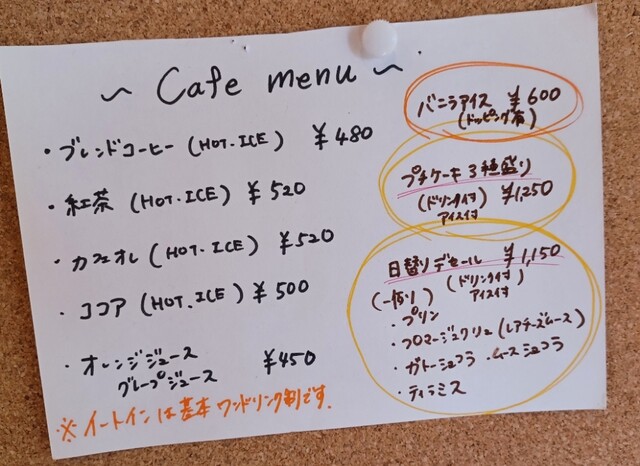 ~ Cafe menu ~
・ブレンドコーヒー (HOT・ICE) ¥480
・紅茶 (HOT・ICE) ¥520
・カフェオレ (HOT・ICE) ¥520
・ココア (HOT.ICE) ¥500
・オレンジジュース
グレープジュース ¥450
※イートインは基本ワンドリンク制です.
バニラアイス ¥600
(トッピング有)
プチケーキ3種盛り
(ドリンク付) ¥1,250
アイス付
日替りデセール ¥1,150
(一例り) (ドリンク付)
アイス付
・プリン
・フロマージュクリュ (レアチーズムース)
・ガトーショコラ ・ムースショコラ
・ティラミス